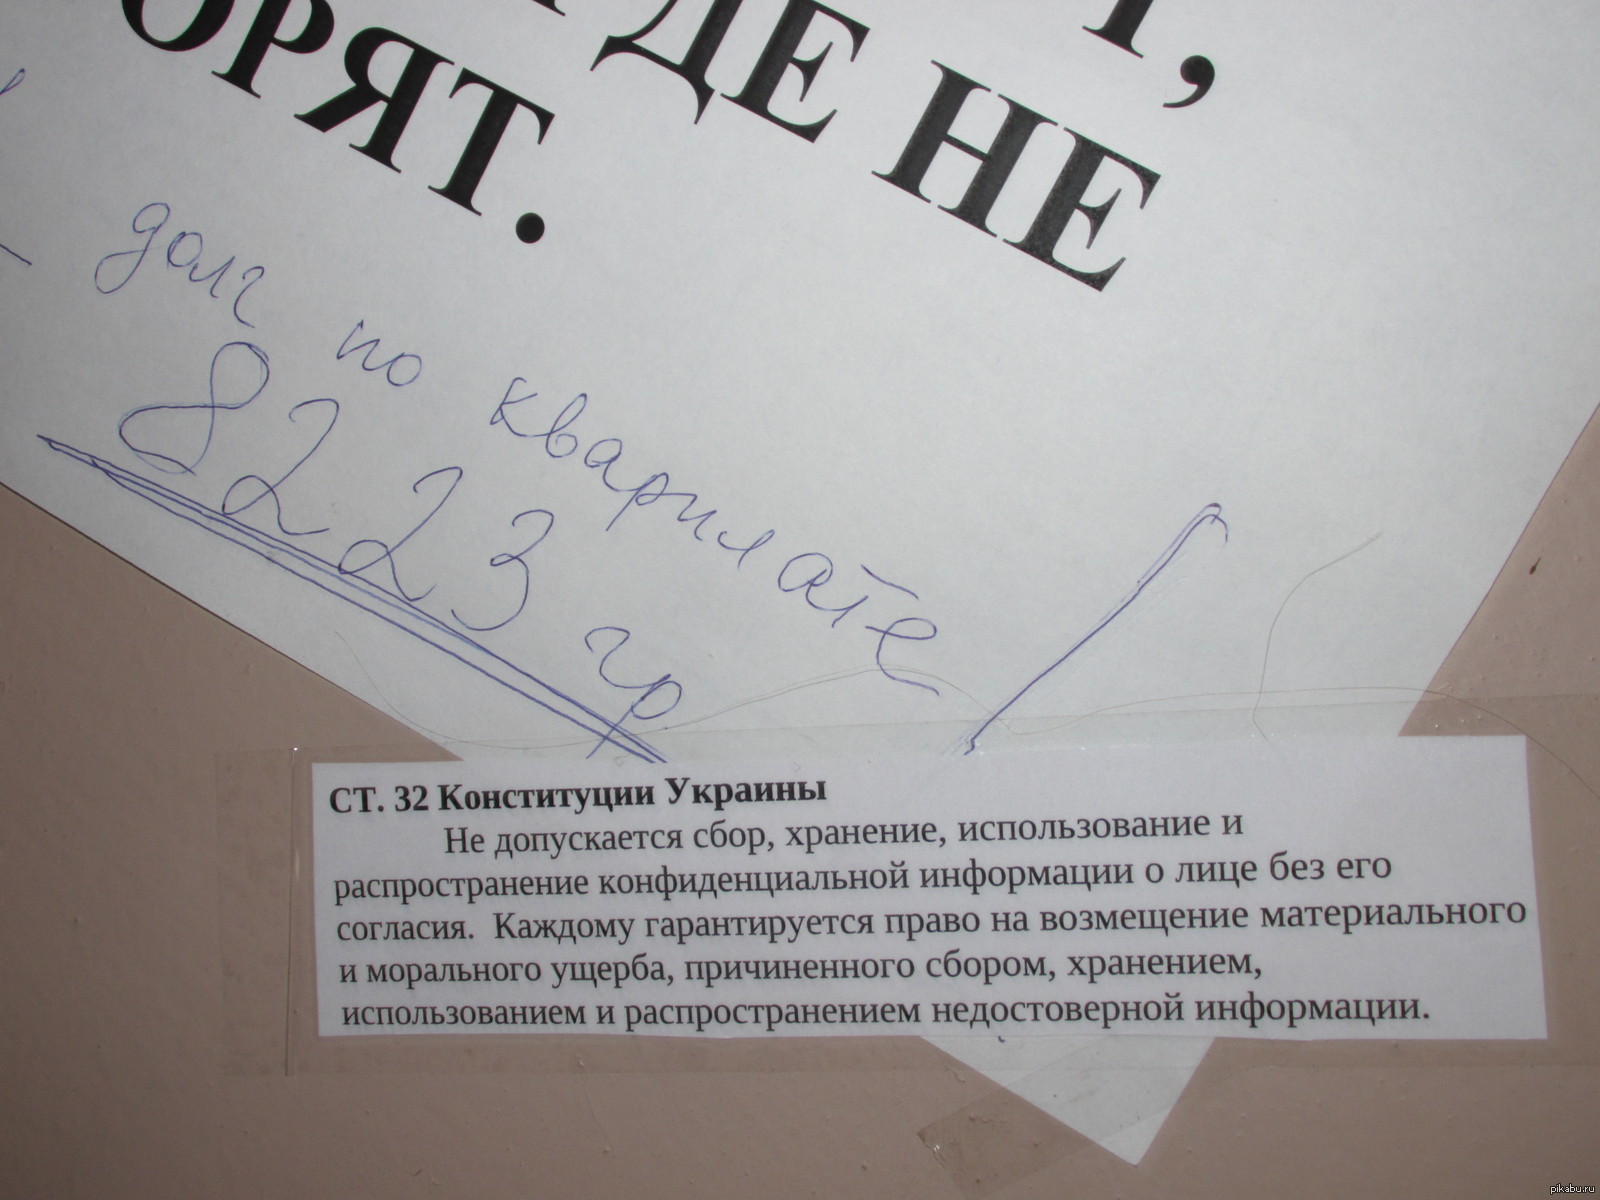 ДЕ НЕ
долг по квариլате
8223 гр
СТ. 32 Конституции Украины
Не допускается сбор, хранение, использование и
распространение конфиденциальной информации о лице без его
согласия. Каждому гарантируется право на возмещение материального
и морального ущерба, причиненного сбором, хранением,
использованием и распространением недостоверной информации.
pikabu.ru